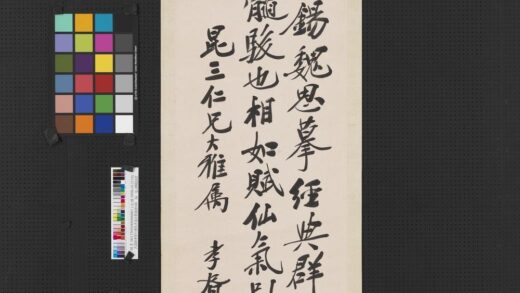 錫魏思摹經典群
髓駿也相如賦仙氣
昆三仁兄大雅属 孝胥